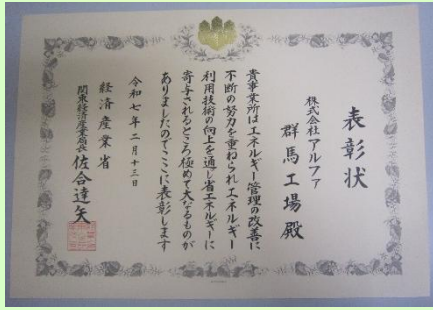 表彰状
株式会社アルファ
群馬工場殿
貴事業所はエネルギー管理の改善に
不断の努力を重ねられエネルギー
利用技術の向上を通し省エネルギーに
寄与されるところ極めて大なるものが
ありましたのでここに表彰します
令和七年二月十三日
経済産業省
関東経済産業局長 佐合達矢